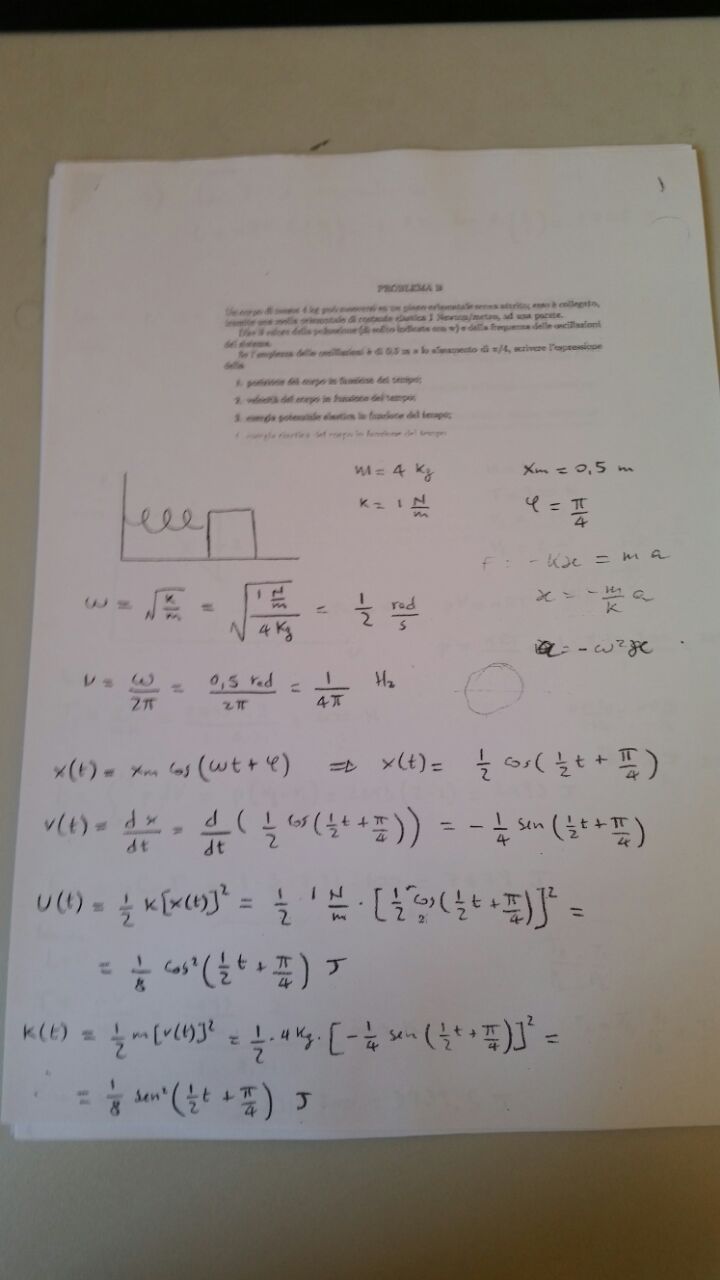 PROBLEMA B
Un corpo di massa 4 kg può muoversi su un piano orizzontale senza attrito; esso è collegato,
tramite una molla orizzontale di costante elastica 1 Newton/metro, ad una parete.
Dire il valore della pulsazione (di solito indicata con w) e della frequenza delle oscillazioni
del sistema.
Se l'ampiezza delle oscillazioni è di 0,5 m e lo sfasamento di π/4, scrivere l'espressione
della
1. posizione del corpo in funzione del tempo;
2. velocità del corpo in funzione del tempo;
3. energia potenziale elastica in funzione del tempo;
energia del corpo in funzione del tempo
m = 4 Kg
xm = 0,5 m
K = 1 N/m
φ = π/4
F: -Kx = m a
x = - m/K a
a = -ω²x
ω = √(K/m) = √(1 N/m / 4 Kg) = 1/2 rad/s
ν = ω/2π = 0,5 rad/2π = 1/4π Hz
x(t) = xm cos(ωt + φ) ⇒ x(t) = 1/2 cos(1/2 t + π/4)
v(t) = dx/dt = d/dt (1/2 cos(1/2 t + π/4)) = - 1/4 sen(1/2 t + π/4)
U(t) = 1/2 K[x(t)]² = 1/2 · 1 N/m · [1/2 cos(1/2 t + π/4)]² =
= 1/8 cos²(1/2 t + π/4) J
K(t) = 1/2 m[v(t)]² = 1/2 · 4 Kg · [- 1/4 sen(1/2 t + π/4)]² =
= 1/8 sen²(1/2 t + π/4) J